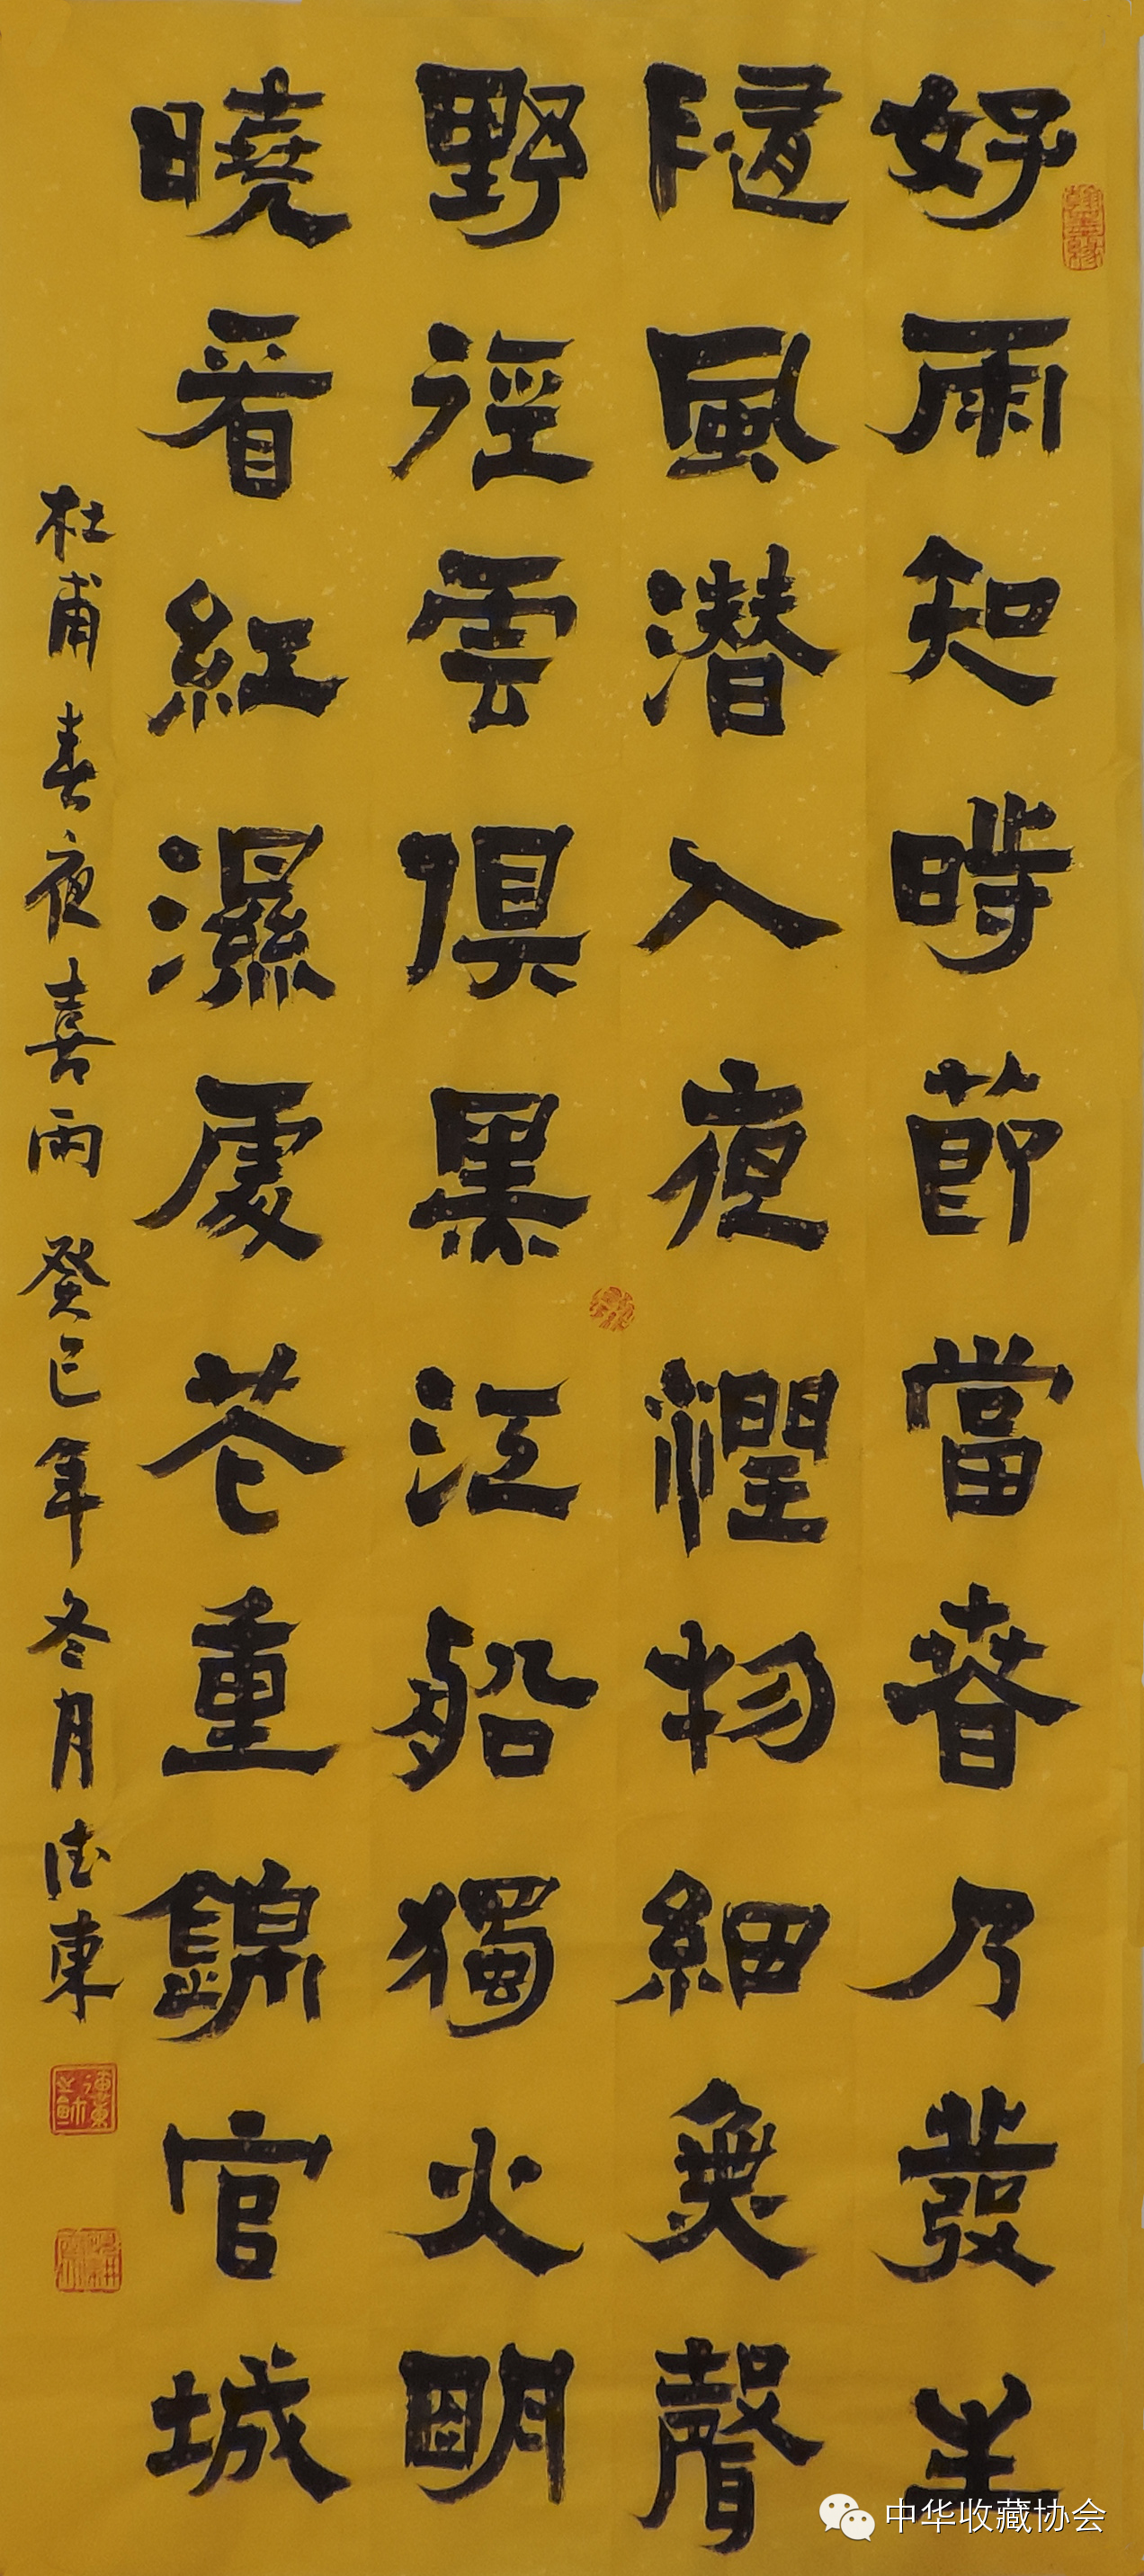 好雨知時節當春乃發生
隨風潜入夜潤物細無聲
野徑雲俱黑江船獨火明
曉看紅濕處花重錦官城
杜甫春夜喜雨 癸巳年冬月 德東
翰墨緣
中华收藏协会